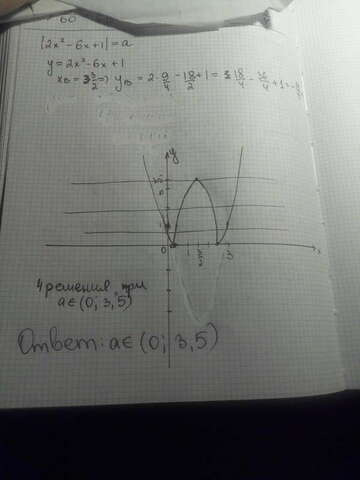 60
|2x²-6x+1|=a
y=2x²-6x+1
x_B=3/2=) y_B=2·9/4-18/2+1=18/4-36/4+1=-
y
0 1 3/2 3 x
4 решения при
a∈(0; 3,5)
Ответ: a∈(0; 3,5)